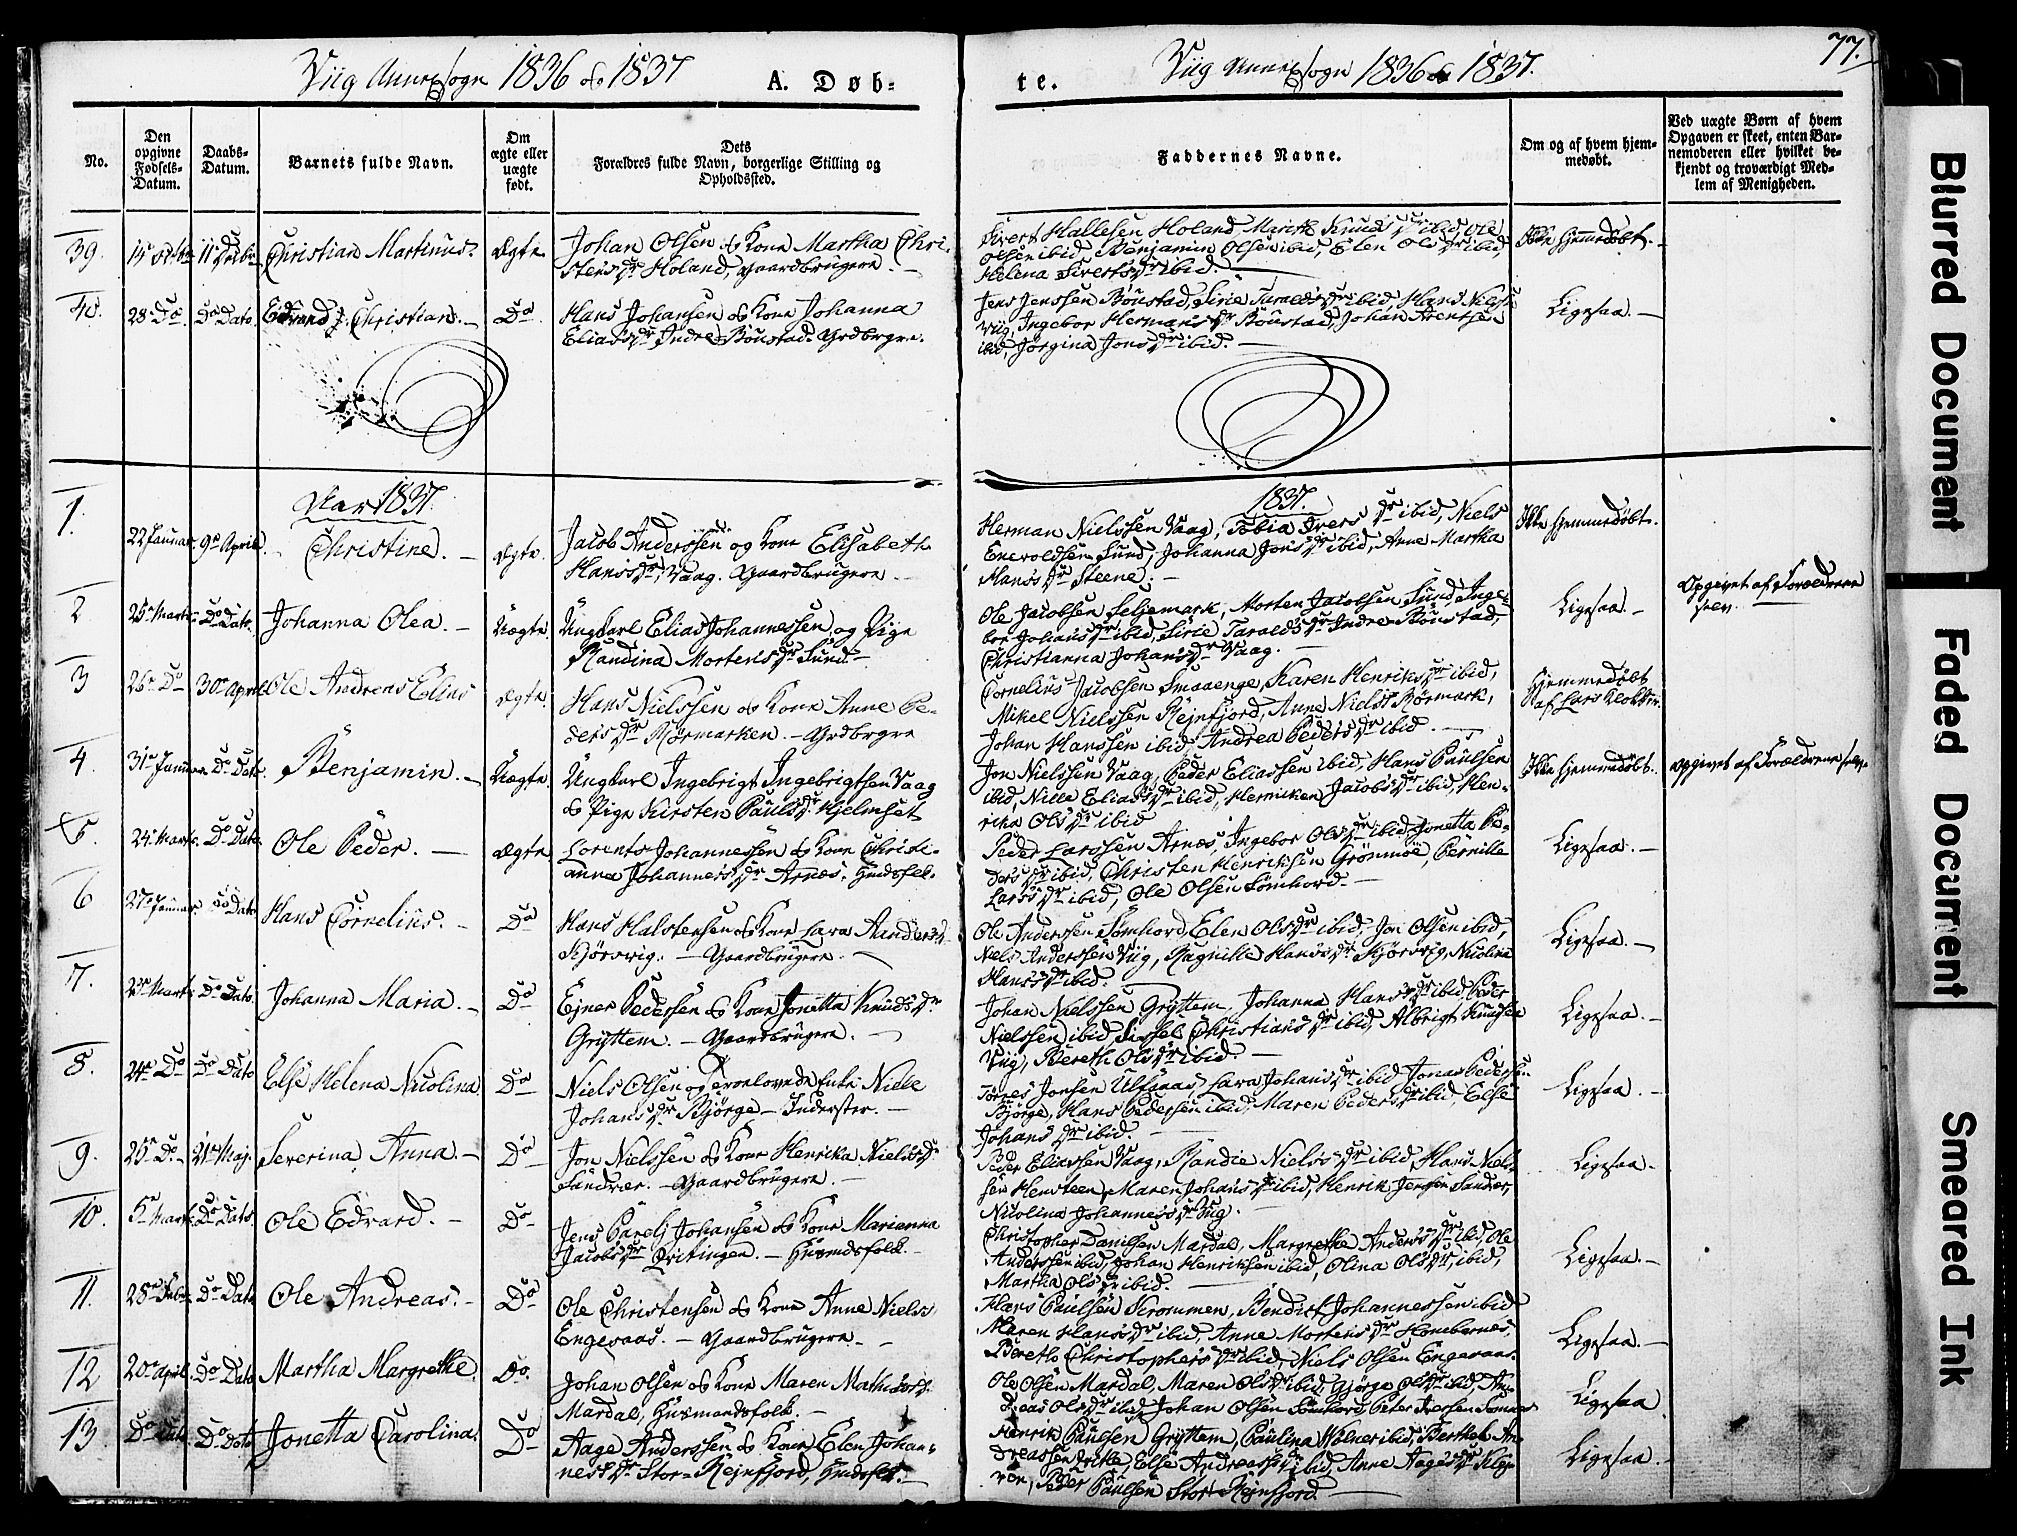 Viig Annexsogn 1836 & 1837
A. Døb-
te.
Viig Annexsogn 1836 & 1837.
77.
No.
Den opgivne Fødsels-Datum.
Daabs-Datum.
Barnets fulde Navn.
Om ægte eller uægte født.
Dets Forældres fulde Navn, borgerlige Stilling og Opholdssted.
Faddernes Navne.
Om og af hvem hjemmedøbt.
Ved uægte Børn af hvem Opgaven er skeet, enten Barnemoderen eller hvilket bekjendt og troværdigt Medlem af Menigheden.
39. Christian Martinus. Ægte.
Johan Olsen & Kone Martha Chri-
stens Dr Holand, Gaardbrugere.
Sivert Hallesen Holand, Marith Knuds Dr ibid, Ole
Olsen ibid, Benjamin Olsen ibid, Elen Ols Dr ibid,
Helena Siverts Dr ibid.
Ikke hjemmedøbt.
40. 28 Do Do Dato. Edvard J. Christian. Do
Hans Johansen & Kone Johanna
Elias Dr Indre Bönstad. Grdbrgre.
Jens Jenssen Bönstad, Sirie Taralds Dr ibid, Hans Nielsen
Viig, Ingebor Hermans Dr Bönstad, Johan Arentsen
ibid, Jörgina Jons Dr ibid.
Ligesaa.
Aar 1837.
1837.
1. 22 Januar. 9de April. Christine. Ægte.
Jacob Anderssen og Kone Elisabeth
Hans Dr, Vaag. Gaardbrugere.
Herman Nielssen Vaag, Tobia Ivers Dr ibid, Niels
Enevoldsen Sund, Johanna Jons Dr ibid, Anne Martha
Hans Dr Steene.
Ikke hjemmedøbt.
2 25 Marts. Do Dato. Johanna Olea. Uægte.
Ungkarl Elias Johannessen, og Pige
Randina Mortens Dr Sund.
Ole Jacobsen Seljemark, Morten Jacobsen Sund, Inge-
bor Johans Dr ibid, Sirie Taralds Dr Indre Bönstad,
Christianna Johans Dr Vaag.
Ligesaa.
Opgivet af Forældrene
selv.
3 26 Do 30 April Ole Andreas Elias Ægte.
Hans Nielssen & Kone Anne Pe-
ders Dr Rörmarken. Grdbrgre
Cornelius Jacobsen Smaaenge, Karen Henriks Dr ibid,
Mikel Nielssen Rejnfjord, Anne Niels Dr Rörmark,
Johan Hanssen ibid, Andrea Peders Dr ibid.
Hjemmedøbt
af Lars Klokker.
4. 31 Januar Do Dato. Benjamin. Uægte.
Ungkarl Ingebrigt Ingebrigtsen Vaag
& Pige Kirsten Pauls Dr Hjelmset
Jon Nielssen Vaag, Peder Eliassen ibid, Hans Paulsen
ibid, Nille Elias Dr ibid, Henniken Jacobs Dr ibid, Hen-
rika Ols Dr ibid
Ikke hjemmedøbt.
Opgivet af Forældrene selv.
5. 24 Marts. Do Dato. Ole Peder. Ægte.
Lorents Johannessen & Kone Christi-
anna Johannes Dr Arnæs.
Peder Larssen Arnæs, Ingebor Ols Dr ibid, Jonetta Pe-
ders Dr ibid, Christen Henriksen Grönmoe, Pernille
Lars Dr ibid, Ole Olsen Somhord.
Ligesaa.
6 27 Januar. Do Dato. Hans Cornelius. Do
Hans Halstensen & Kone Lara Anders Dr
Skjörvig. Gaardbrugere.
Ole Anderssen Somhord, Elen Ols Dr ibid, Jon Olsen ibid,
Niels Anderssen Viig, Ragnille Hans Dr Skjörvig, Nicolina
Hans Dr ibid.
Ligesaa.
7. Marts Do Dato. Johanna Maria. Do
Ejner Pedersen & Kone Jonetta Knuds Dr
Gryttem. Gaardbrugere.
Johan Nielssen Gryttem, Johanna Hans Dr ibid, Peder
Nielssen ibid, Sirsel Christians Dr ibid, Albrigt Knudsen
Viig, Bereth Ols Dr ibid.
Ligesaa.
8. 24 Do Do Dato Else Helena Nicolina. Do
Niels Olsen og Trolovede Enke Nille
Johans Dr Björge. Inderster.
Torres Jonsen Ulsnæs, Lara Johans Dr ibid, Jonas Pedersen
Björge, Hans Pedersen ibid, Maren Peders Dr ibid, Else
Johans Dr ibid.
Ligesaa.
9. 25 Do 21 Maj. Severina Anna. Do
Jon Nielssen & Kone Henrika Niels Dr
Sandvær. Gaardbrugere.
Peder Eliassen Vaag, Randie Niels Dr ibid, Hans Niels-
sen Hensteen, Maren Johans Dr ibid, Henrik Jensen Sandvær,
Nicolina Johannes Dr Viig.
Ligesaa.
10. 5 Marts Do Dato. Ole Edvard. Do
Jens Carolj Johansen & Kone Marianna
Jacobs Dr Qvitingen. Husmdsfolk.
Christopher Danilsen Mardal, Margrethe Anders Dr ibid, Ole
Anderssen ibid, Johan Henriksen ibid, Olina Ols Dr ibid,
Martha Ols Dr ibid.
Ligesaa.
11. 28 Febr. Do Dato Ole Andreas. Do
Ole Christensen & Kone Anne Niels
Engevaas. Gaardbrugere.
Hans Paulsen, Bendict Johannessen ibid
Maren Hans Dr ibid, Anne Mortens Dr
Bereth Christophers Dr ibid, Niels Olsen Engevaas.
Ligesaa.
12 20 April. Do Dato Martha Margrethe. Do.
Johan Olsen & Kone Maren
Mardal, Husmandsfolk.
Ole Olsen Mardal, Maren Ols Dr ibid, Gjörge Ols Dr ibid, An-
dreas Ols Dr ibid, Johan Olsen Somhord, Peter Iversen
Ligesaa
13. Do Dato Do Dato Jonetta Carolina. Do
Aage Anderssen & Kone Elen Johan-
nes Dr Stor-Rejnfjord, Husdsflk.
Henrik Paulsen Gryttem, Paulina ibid, Berthel An-
dreassen, Else Andreas Dr ibid, Anne Aages Dr
Peder Paulsen Stor Rejnfjord.
Ligesaa.
Blurred Document
Faded Document
Smeared Ink